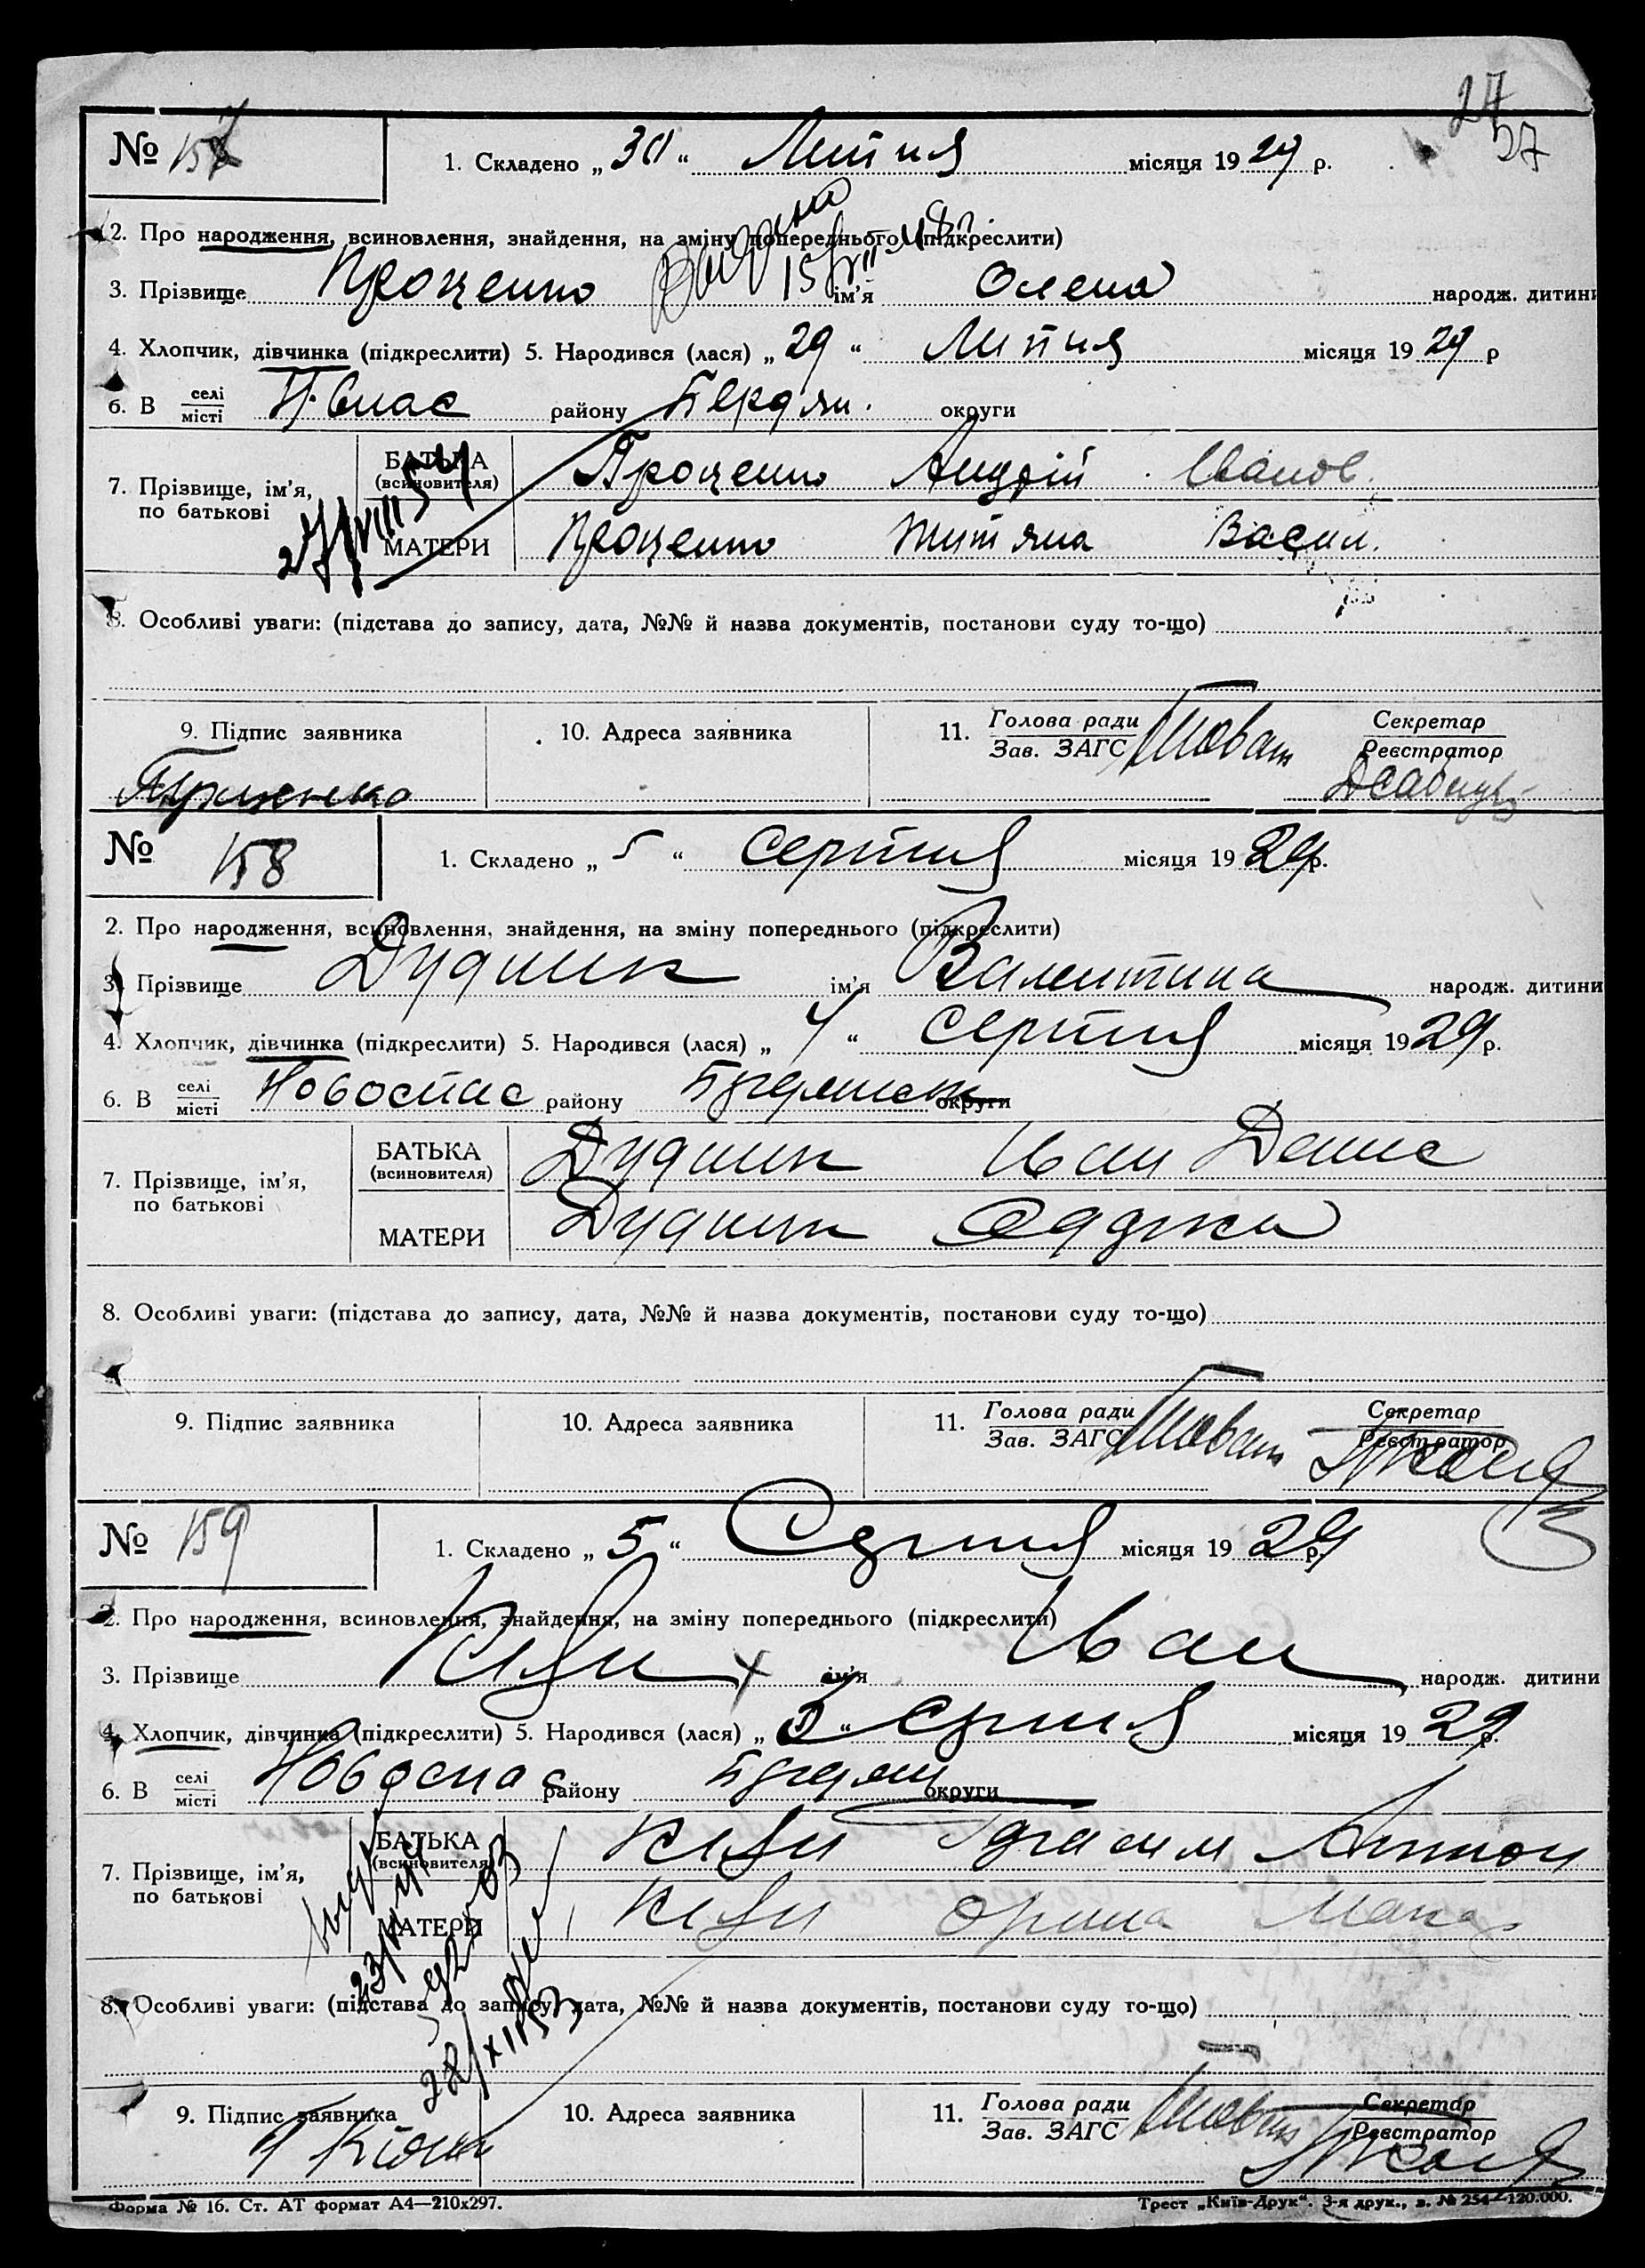 27
27
№ 157
1. Складено „ 30 “ Липня місяця 1929 р.
2. Про народження, всиновлення, знайдення, на зміну попереднього (підкреслити)
3. Прізвище Проценко ім'я Олена народж. дитини
4. Хлопчик, дівчинка (підкреслити) 5. Народився (лася) „ 29 “ Липня місяця 1929 р
6. В селі місті Н.Спас району Бердян. округи
7. Прізвище, ім'я, по батькові
БАТЬКА (всиновителя) Проценко Андрій Іванов.
МАТЕРИ Проценко Титяна Васил.
27/VIII 54
8. Особливі уваги: (підстава до запису, дата, №№ й назва документів, постанови суду то-що)
9. Підпис заявника
10. Адреса заявника
11. Голова ради Зав. ЗАГС
Секретар Реєстратор
№ 158
1. Складено „ 5 “ серпня місяця 1929 р.
2. Про народження, всиновлення, знайдення, на зміну попереднього (підкреслити)
3. Прізвище Дудник ім'я Валентина народж. дитини
4. Хлопчик, дівчинка (підкреслити) 5. Народився (лася) „ 4 “ серпня місяця 1929 р.
6. В селі місті Новоспас району округи
7. Прізвище, ім'я, по батькові
БАТЬКА (всиновителя) Дудник Іван Денис
МАТЕРИ Дудник
8. Особливі уваги: (підстава до запису, дата, №№ й назва документів, постанови суду то-що)
9. Підпис заявника
10. Адреса заявника
11. Голова ради Зав. ЗАГС
Секретар Реєстратор
№ 159
1. Складено „ 5 “ Серпня місяця 1929 р.
2. Про народження, всиновлення, знайдення, на зміну попереднього (підкреслити)
3. Прізвище ім'я Іван народж. дитини
4. Хлопчик, дівчинка (підкреслити) 5. Народився (лася) „ “ Серпня місяця 1929 р.
6. В селі місті Новоспас району округи
7. Прізвище, ім'я, по батькові
БАТЬКА (всиновителя)
МАТЕРИ Орина Макар
28/XII 53
8. Особливі уваги: (підстава до запису, дата, №№ й назва документів, постанови суду то-що)
9. Підпис заявника
10. Адреса заявника
11. Голова ради Зав. ЗАГС
Секретар Реєстратор
Форма № 16. Ст. АТ формат А4—210х297.
Трест „Київ-Друк“. 3-я друк., з. № 254—120.000.